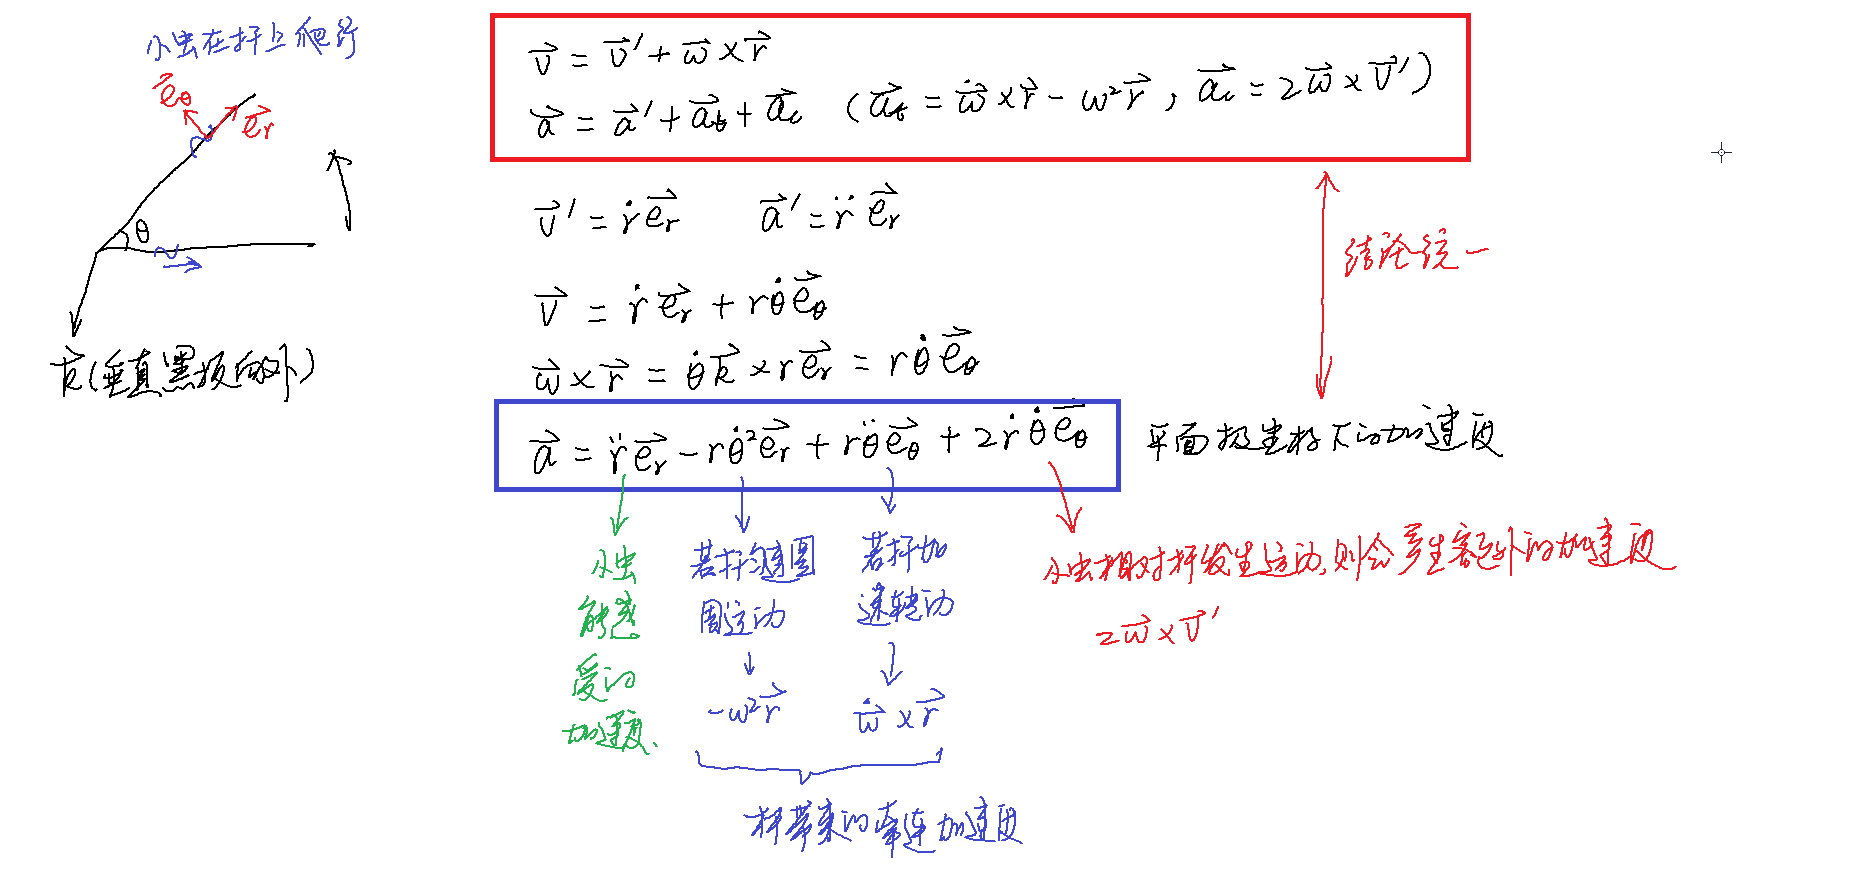 小虫在杆上爬行
e⃗θ
e⃗r
θ
k⃗(垂直黑板向外)
v⃗ = v⃗' + ω⃗ × r⃗
a⃗ = a⃗' + a⃗t + a⃗c (a⃗t = ω⃗̇ × r⃗ − ω²r⃗, a⃗c = 2ω⃗ × v⃗')
v⃗' = ṙe⃗r a⃗' = r̈e⃗r
v⃗ = ṙe⃗r + rθ̇e⃗θ
ω⃗ × r⃗ = θ̇k⃗ × re⃗r = rθ̇e⃗θ
结论统一
a⃗ = r̈e⃗r − rθ̇²e⃗r + rθ̈e⃗θ + 2ṙθ̇e⃗θ
平面极坐标下的加速度
小虫
能感
受的
加速度.
若杆匀速圆
周运动
−ω²r⃗
若杆加
速转动
ω⃗̇ × r⃗
杆带来的牵连加速度
小虫相对杆发生运动,则会产生额外的加速度
2ω⃗ × v⃗'